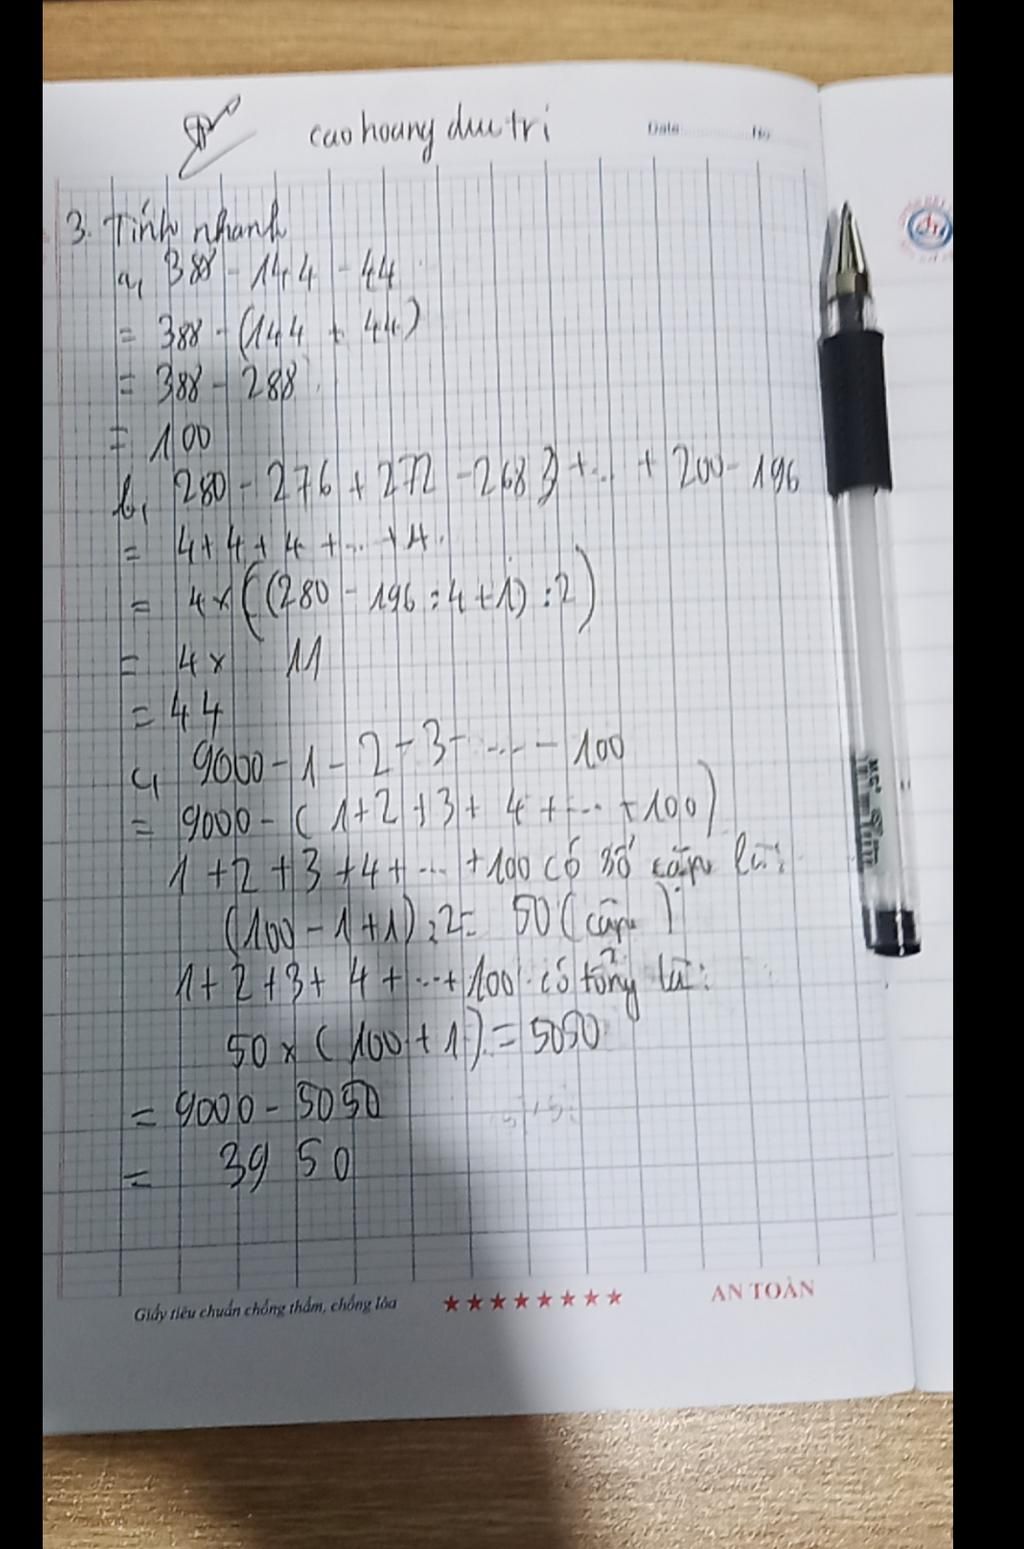 cao hoang duc tri
Date No
3. Tính nhanh
a, 388 - 144 - 44
= 388 - (144 + 44)
= 388 - 288
= 100
b, 280 - 276 + 272 - 268 + ... + 200 - 196
= 4 + 4 + 4 + ... + 4
= 4 x ((280 - 196 : 4 + 1) : 2)
= 4 x 11
= 44
c, 9000 - 1 - 2 - 3 - ... - 100
= 9000 - (1 + 2 + 3 + 4 + ... + 100)
1 + 2 + 3 + 4 + ... + 100 có số cặp là:
(100 - 1 + 1) : 2 = 50 (cặp)
1 + 2 + 3 + 4 + ... + 100 có tổng là:
50 x (100 + 1) = 5050
= 9000 - 5050
= 3950
Giấy tiêu chuẩn chống thấm, chống lóa ★★★★★★★★ AN TOÀN